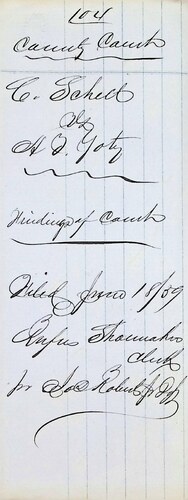 104
County Court
C. Schell
vs
A. D. Yotz
Findings of Court
Filed June 18/59
Rufus Shoemaker
Clerk
pr Jos Roberts jr Dpt